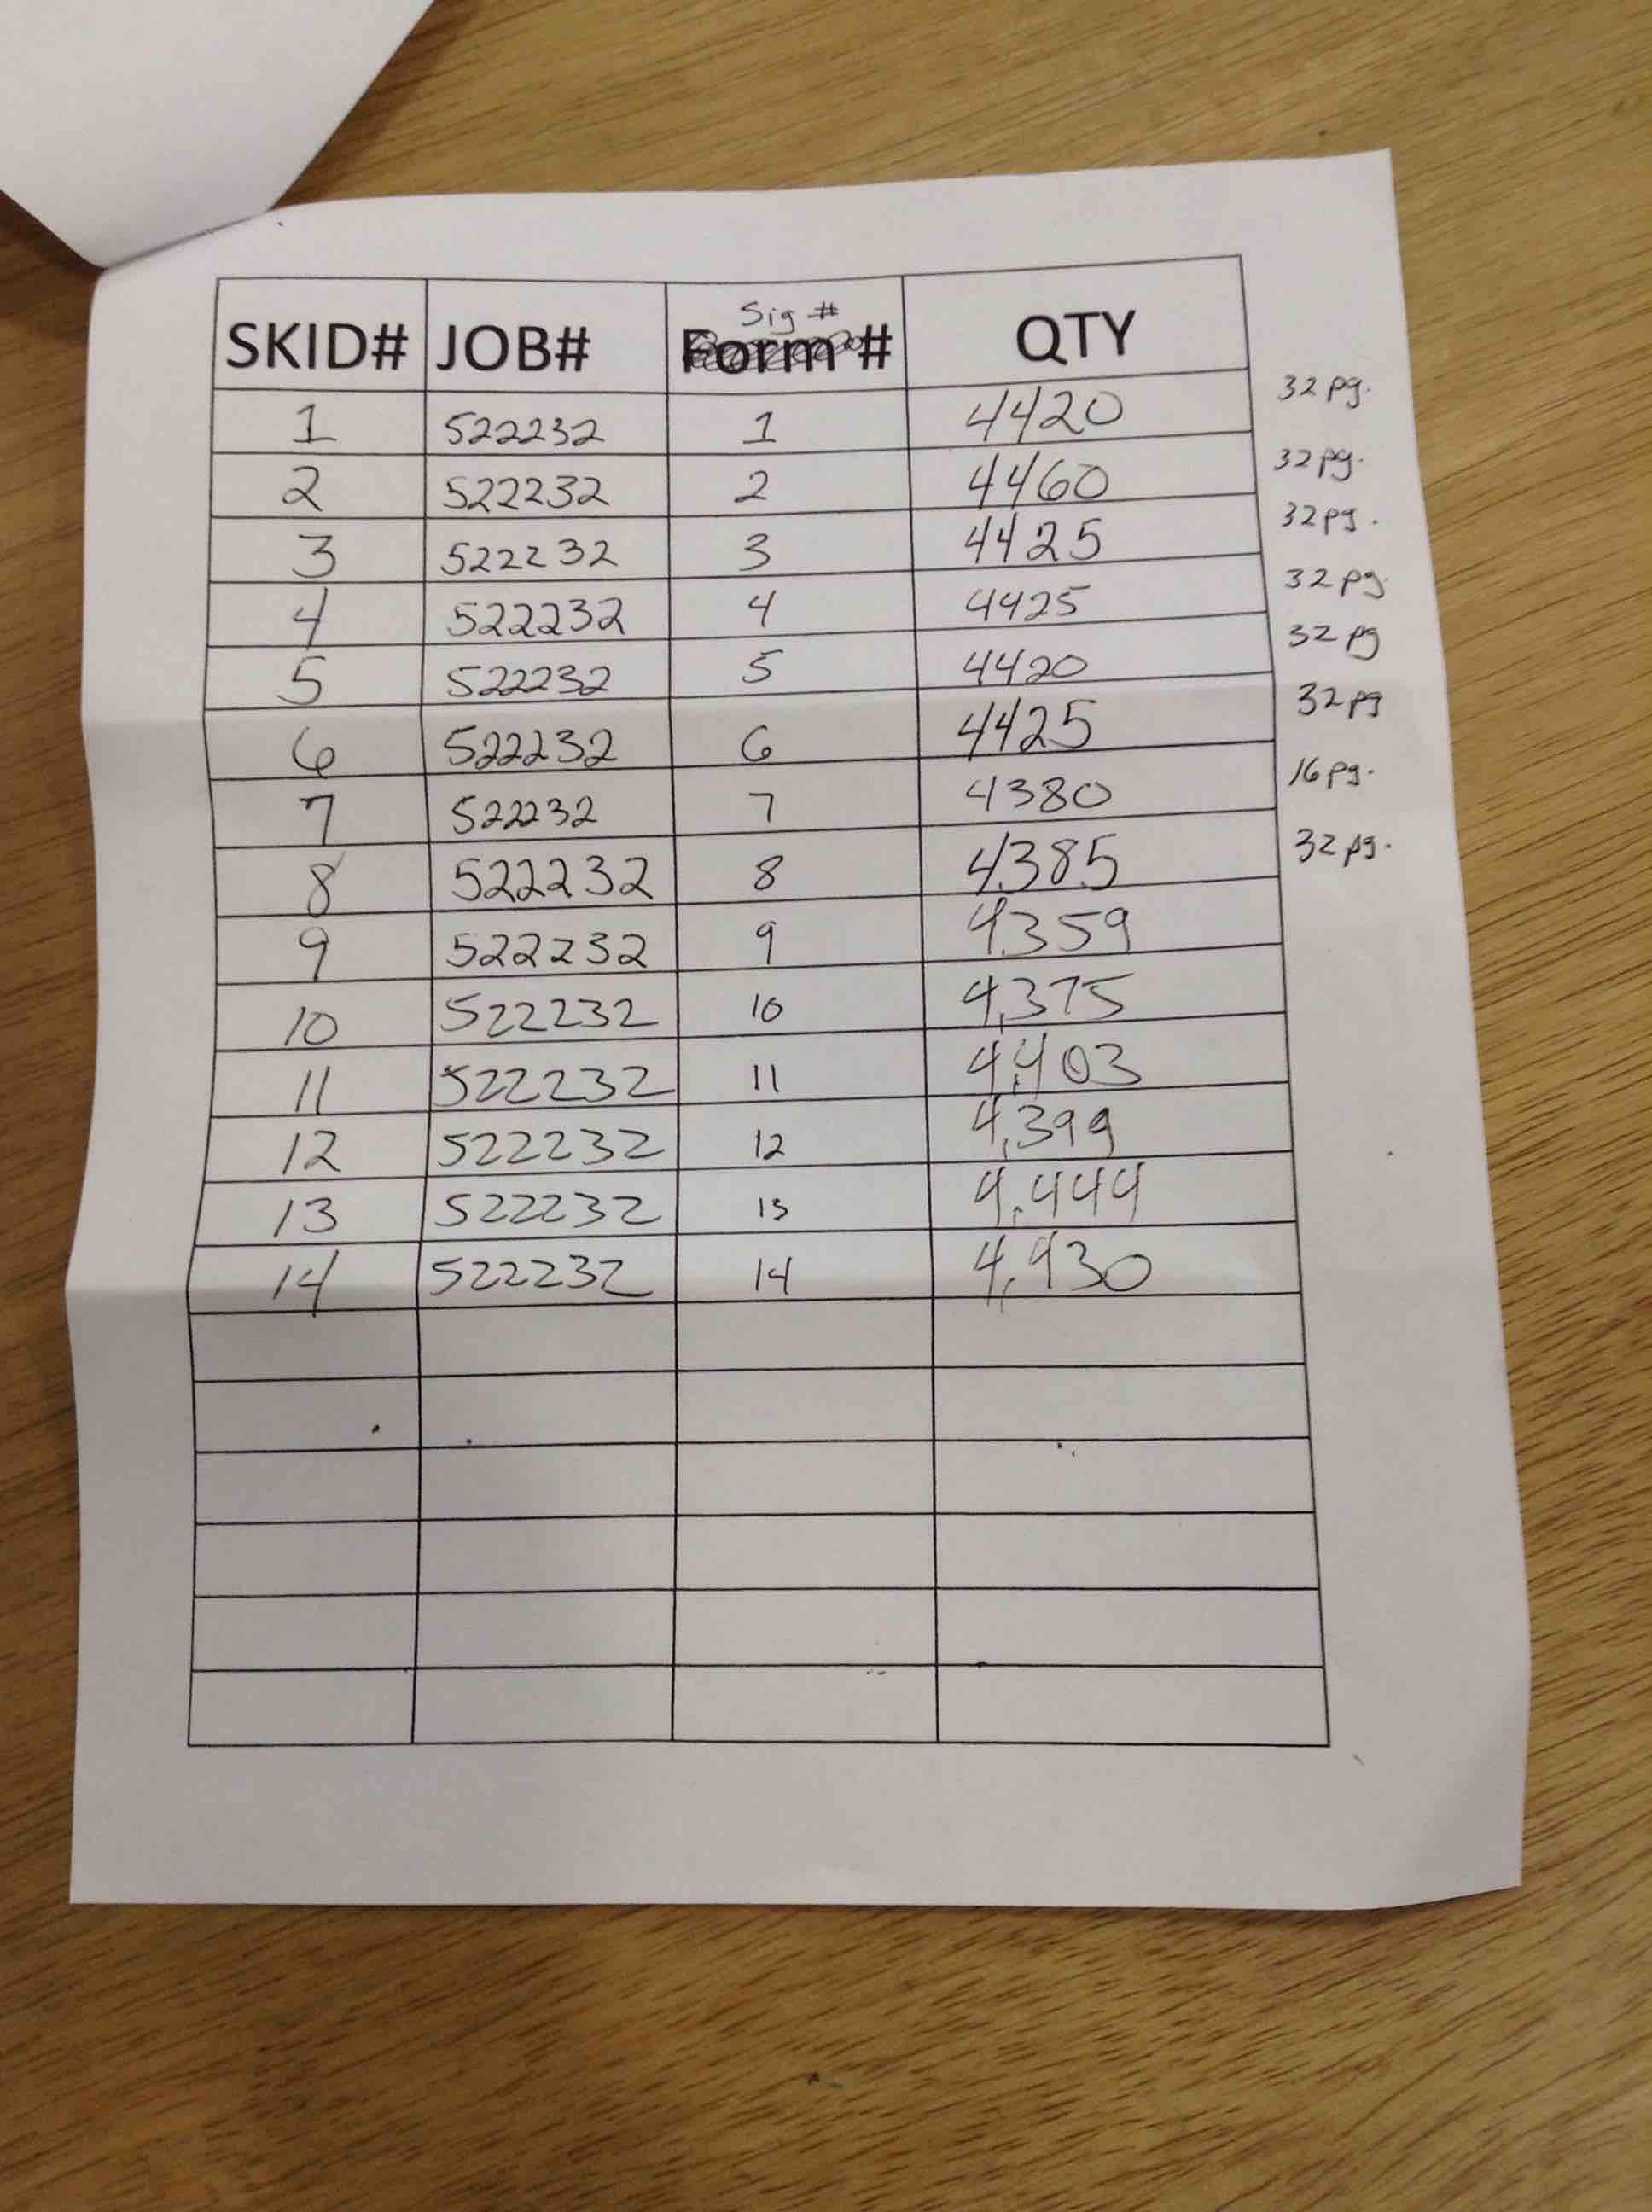 Sig #
SKID# JOB# Form # QTY
1 522232 1 4420 32 pg.
2 522232 2 4460 32 pg.
3 522232 3 4425 32 pg.
4 522232 4 4425 32 pg.
5 522232 5 4420 32 pg
6 522232 6 4425 32 pg
7 522232 7 4380 16 pg.
8 522232 8 4385 32 pg.
9 522232 9 4,359
10 522232 10 4,375
11 522232 11 4,403
12 522232 12 4,399
13 522232 13 4,444
14 522232 14 4,430